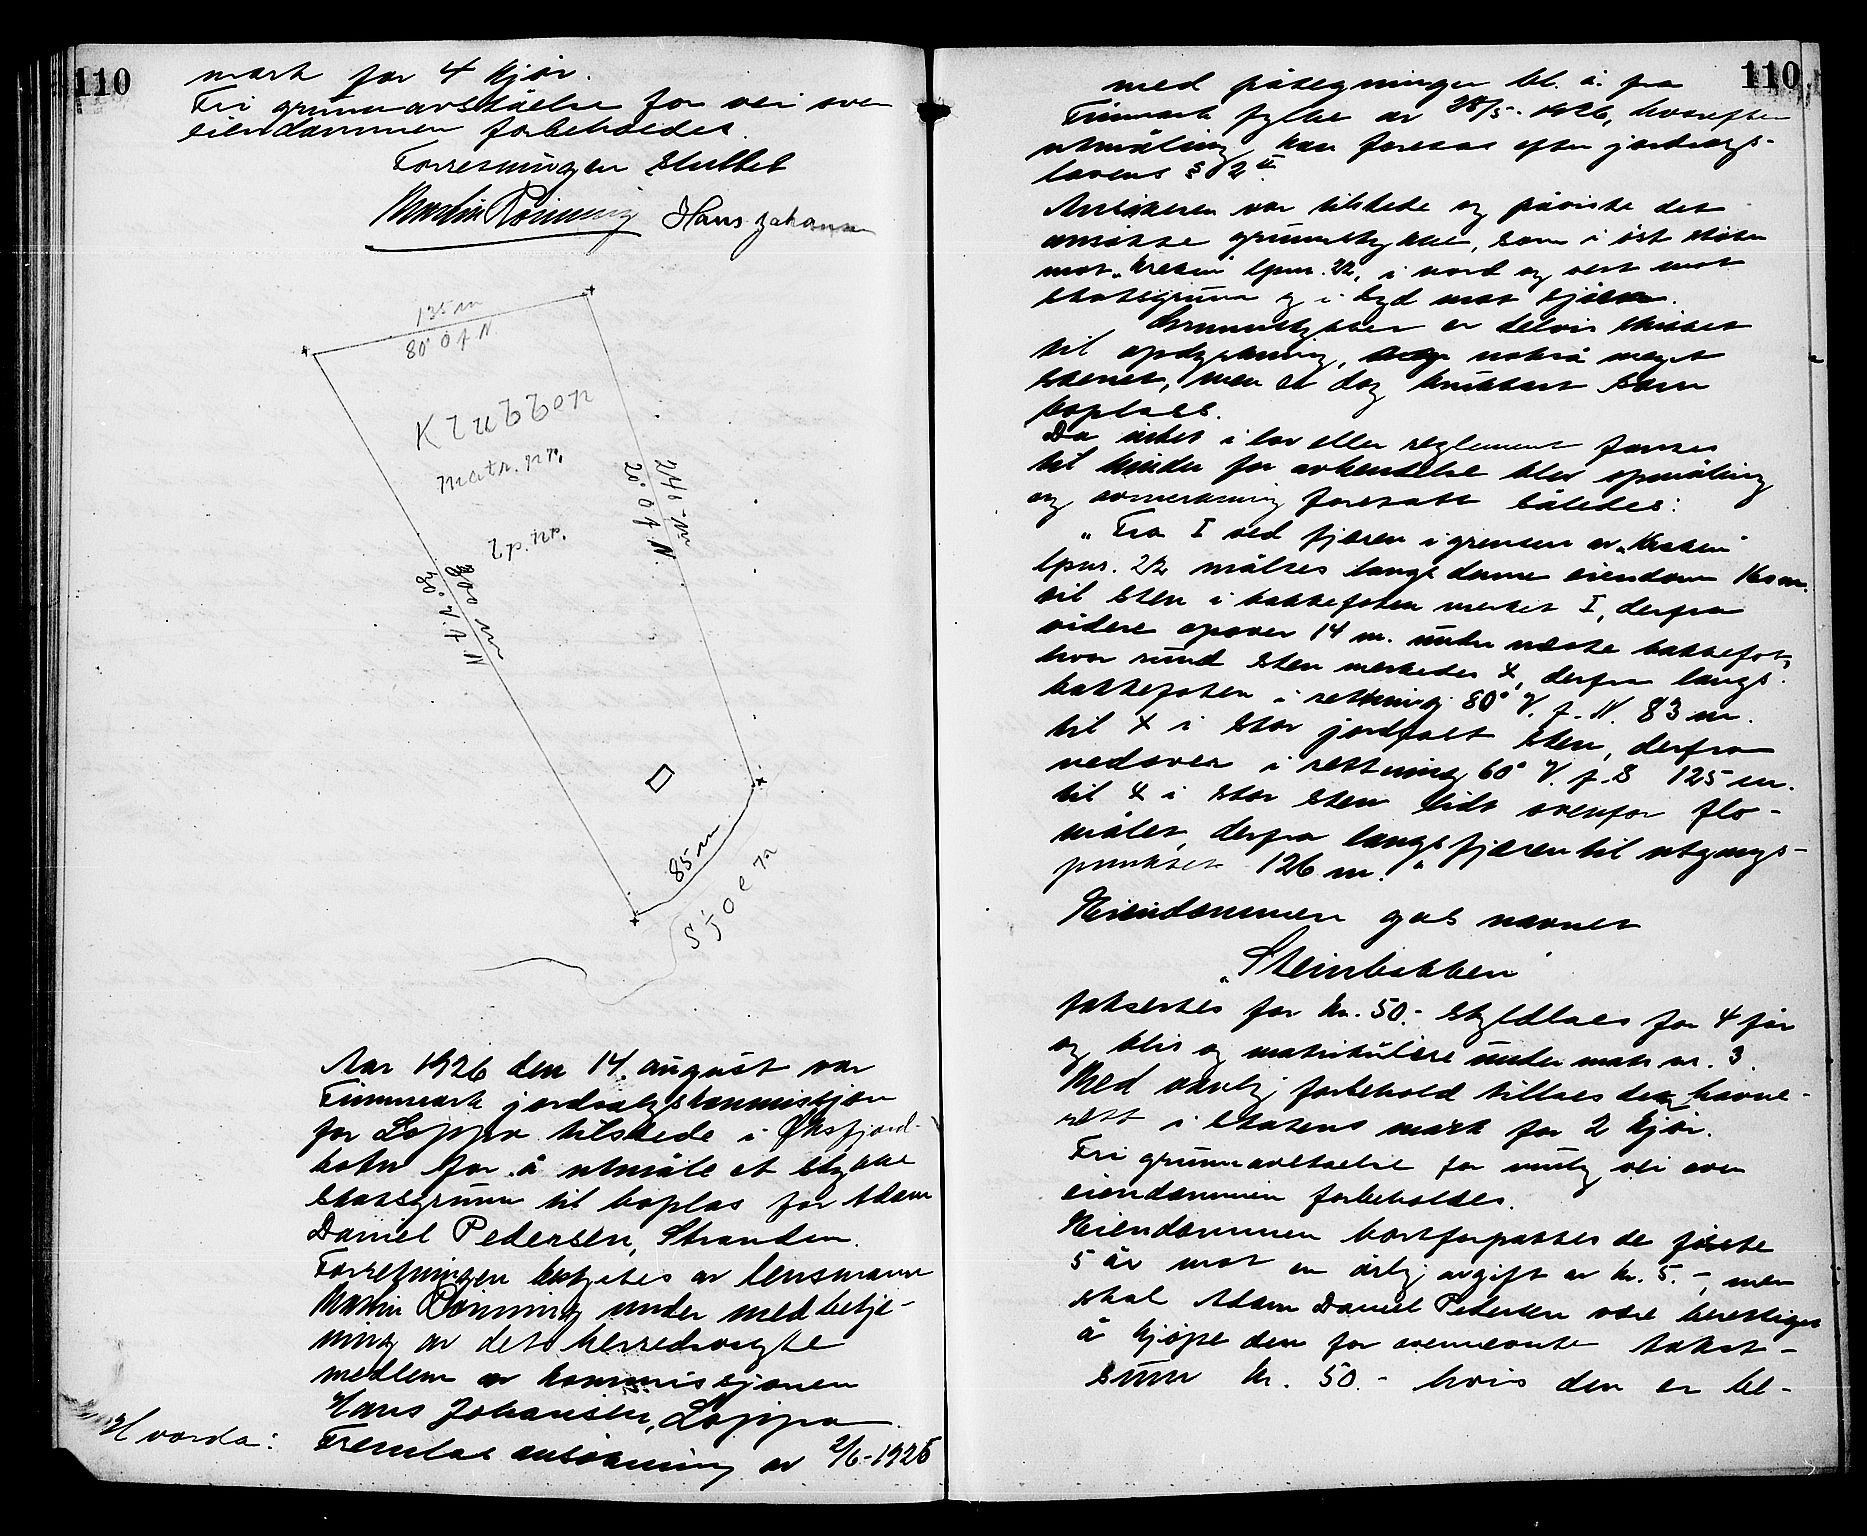 110
mark for 4 kjør.
Fri grunnavståelse for vei over
eiendommen forbeholdes.
Forretningen sluttet
Martin Rønning Hans Johansen
135 m
80° Ø f N
Klubben
matr. nr.
lp. nr.
240 m
20° Ø f. N.
300 m
V. f. N
85 m
Sjøen
Aar 1926 den 14. august var
Finnmark jordsalgskommisjon
for Loppa tilstede i Øksfjord-
botn for å utmåle et stykke
statsgrunn til boplas for Adam
Daniel Pedersen, Stranden.
Forretningen bestyrtes av lensmann
Martin Rønning under medbetje-
ning av det herredsvalgte
medlem av kommissjonen
Hans Johansen, Loppa
Hvorda:
Fremlas ansøkning av 2/6-1925
110
med påtegninger bl. a. fra
Finnmark fylke av 28/5-1926, hvorefter
utmåling kan foretas efter jordsalgs-
lovens § 2
Ansøkeren var tilstede og påviste det
ansøkte grunnstykke, som i øst støter
mot "Kroken" lpnr. 22, i nord og vest mot
statsgrunn og i syd mot sjøen.
Grunnstykket er delvis skikket
til opdyrkning, nokså meget
stenet, men er dog brukbart som
boplass.
Da intet i lov eller reglement fantes
til hinder for avhendelse blev opmåling
og avmerkning foretatt således:
"Fra I ved fjæren i grensen av "Kroken"
lpnr. 22 måltes langs denne eiendom m.
til sten i bakkefoten merket I, derfra
videre opover 14 m. under næste bakkefot,
hvor rund sten merkedes X, derfra langs
bakkefoten i retning 80° V. f. N. 83 m.
til X i stor jordfast sten, derfra
nedover i rettning 60° V. f. S 125 m.
til X i stor sten lidt ovenfor flo-
målet, derfra langs fjæren til utgangs-
punktet 126 m."
Eiendommen gas navnet
"Steinbakken"
taksertes for kr. 50.- skyldlaes for 4 før
og blir og matrikulere under matr nr. 3.
Med vanlig forbehold tillaes den havne-
rett i statens mark for 2 kjør.
Fri grunnavståelse for mulig vei over
eiendommen forbeholdes.
Eiendommen bortforpaktes de første
5 år mot en årlig avgift av kr. 5.-, men
skal Adam Daniel Pedersen være berettiget
å kjøpe den for ovennevnte takst-
sum kr. 50.- hvis den er be-